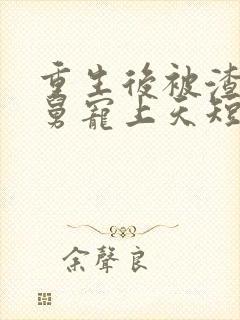 重生後被渣
舅寵上天短
余聲良